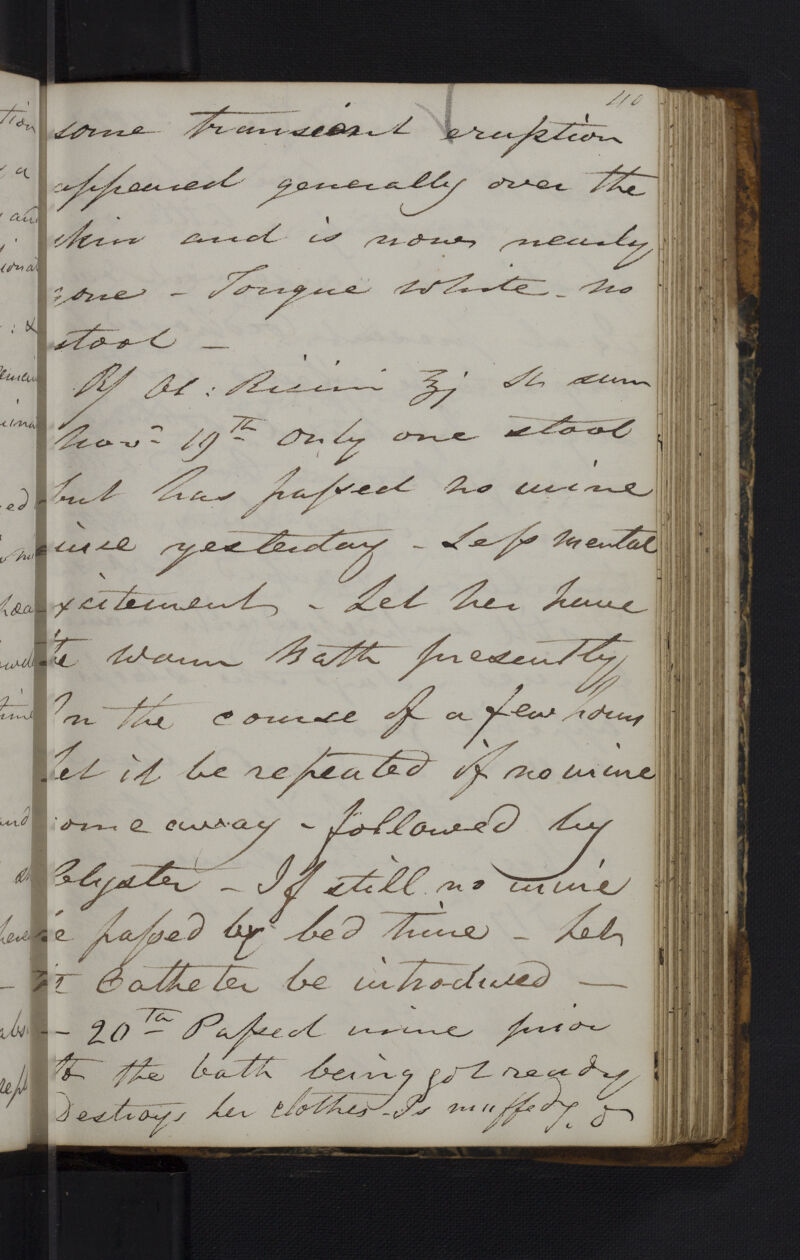 110
some transient eruption
appeared generally over the
skin and is now nearly
gone - Tongue white - no
stool -
R/ Ol: Ricini ʒj St sum
Novr 19th Only one stool
but has paſsed no urine
since yesterday - Leſs mental
excitement - Let her have
the warm Bath presently
In the course of a few hours
let it be repeated if no urine
come away - followed by
Clyster - If still no urine
be paſsed by bed time - Let
the Catheter be introduced —
- 20th Paſsed urine prior
to the bath being got ready
Destroys her clothes - Is muffed, &